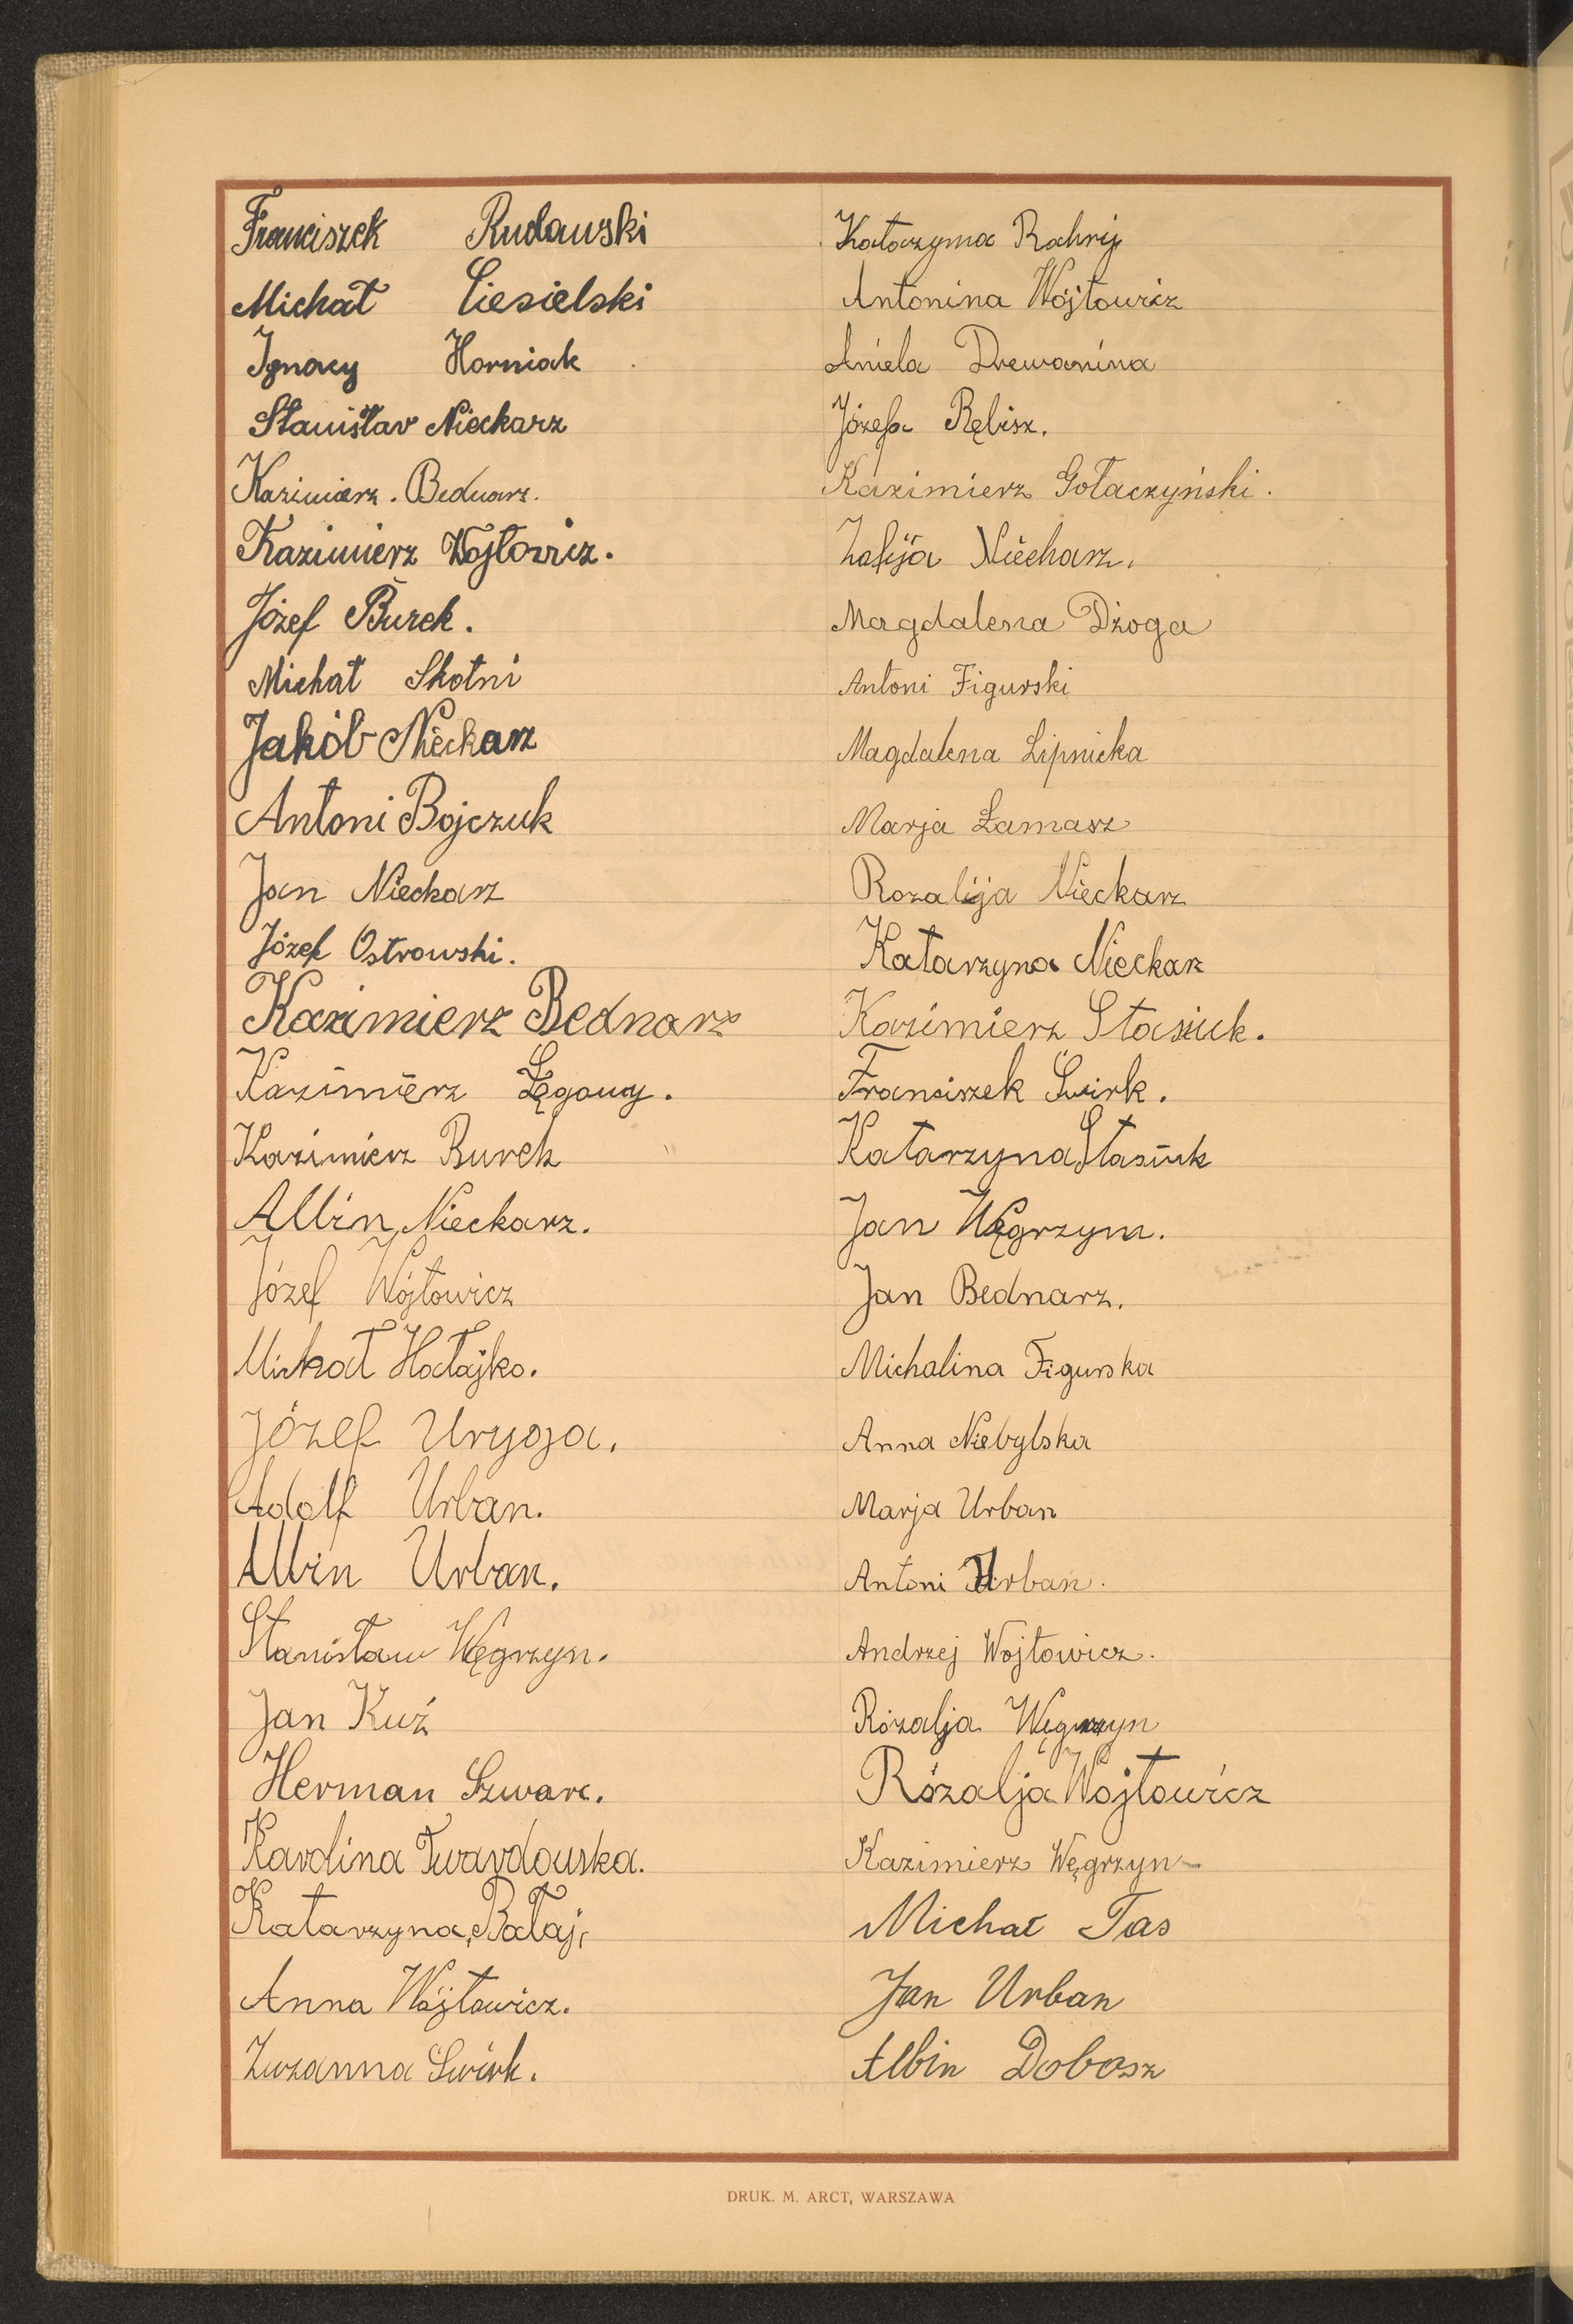 Franciszek Rudawski
Michał Ciesielski
Ignacy Horniak
Stanisław Nieckarz
Kazimierz. Bednarz.
Kazimierz Wojtowicz.
Józef Burek.
Michał Skotni
Jakób Nieckarz
Antoni Bojczuk
Jan Nieckarz
Józef Ostrowski.
Kazimierz Bednarz
Kazimierz Łęgowy.
Kazimierz Burek
Albin Nieckarz.
Józef Wójtowicz
Michał Hałajko.
Józef Uryga.
Adolf Urban.
Albin Urban.
Stanisław Węgrzyn.
Jan Kuź
Herman Szwarc.
Karolina Twardowska.
Katarzyna Bałaj,
Anna Wójtowicz.
Zuzanna Świrk.
Katarzyna
Antonina Wójtowicz
Aniela Drewanina
Józefa Rębisz.
Kazimierz Gołaczyński.
Zofija Nieckarz.
Magdalena Dżoga
Antoni Figurski
Magdalena Lipnicka
Marja Łamasz
Rozalija Nieckarz
Katarzyna Nieckarz
Kazimierz Stasiuk.
Franciszek Świrk.
Katarzyna Stasiuk
Jan Węgrzyn.
Jan Bednarz.
Michalina Figurska
Anna Niebylska
Marja Urban
Antoni Urban.
Andrzej Wojtowicz.
Rózalja Węgrzyn
Rózalja Wojtowicz
Kazimierz Węgrzyn
Michał Tas
Jan Urban
Albin Dobosz
DRUK. M. ARCT, WARSZAWA